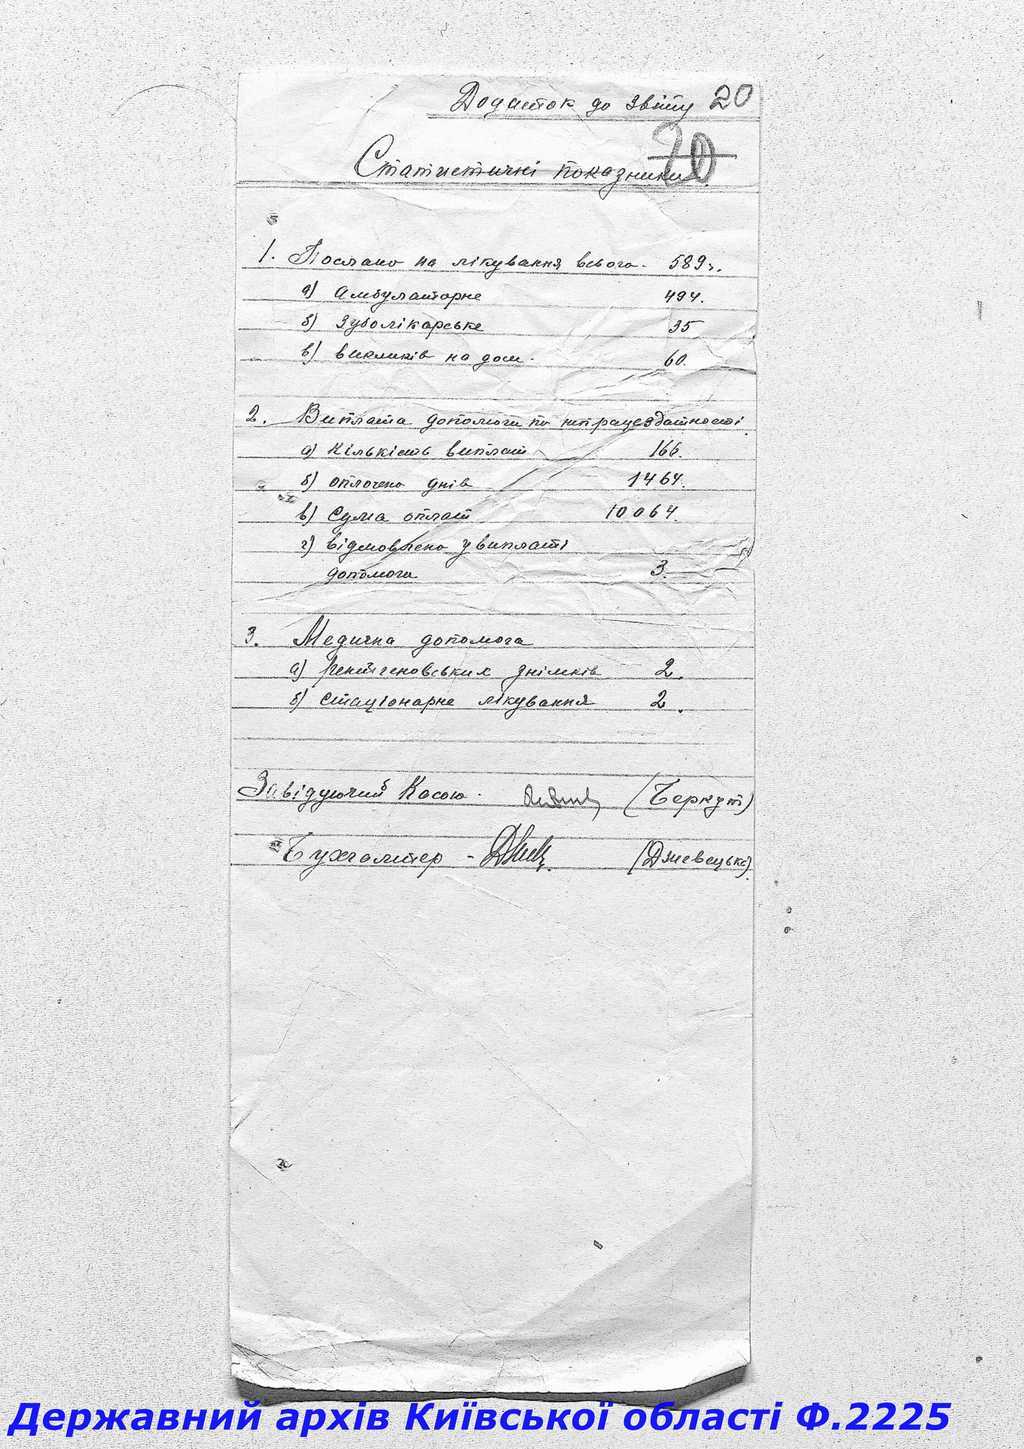 Додаток до звіту 20
20
Статистичні показники.
1. Послано на лікування всього. 589 ч.
а) Амбулаторне 494.
б) Зуболікарське 35
в) викликів на дом. 60.
2. Виплата допомоги по непрацездатності
а) Кількість виплат 166.
б) оплочено днів 1464.
в) Сума оплат 10064.
г) відмовлено у виплаті
допомоги 3.
3. Медична допомога
а) Рентгеновських знімків 2.
б) Стаціонарне лікування 2.
Завідуючий Касою. (Беркут)
Бухгалтер -
Державний архів Київської області Ф.2225